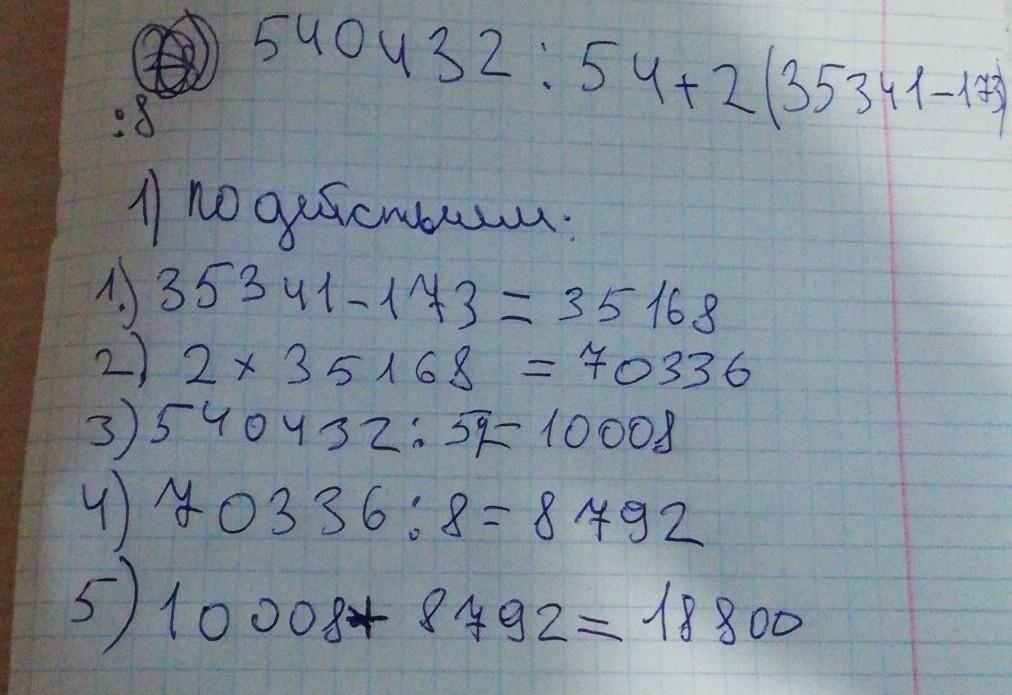 540432 : 54 + 2(35341 - 173)
: 8
1) по действиям:
1.) 35341 - 173 = 35168
2) 2 × 35168 = 70336
3) 540432 : 54 = 10008
4) 70336 : 8 = 8792
5) 10008 + 8792 = 18800